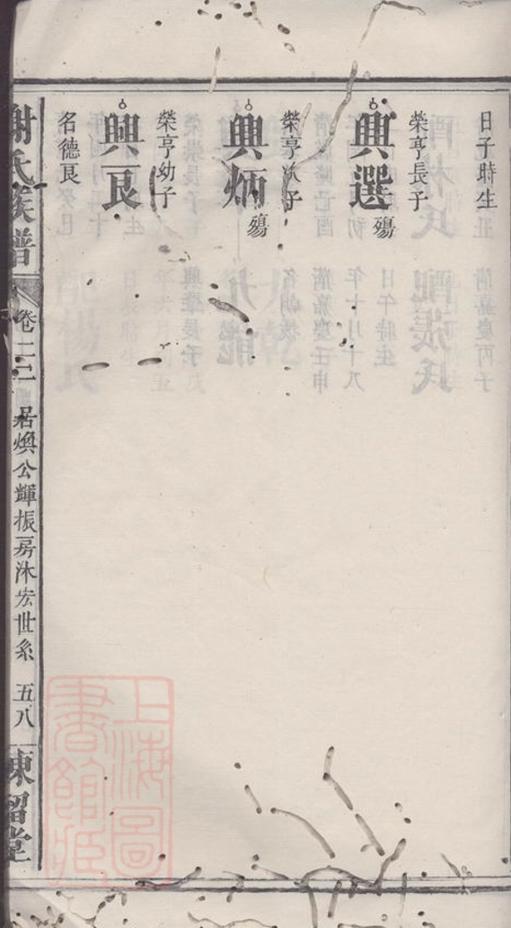 日子時生
榮亨長子
興選 殤
榮亨次子
興炳 殤
榮亨幼子
興艮
名德艮
謝氏族譜
卷二二
君煥公輝振房沐宏世系 五八
陳留堂
上海圖
書館藏